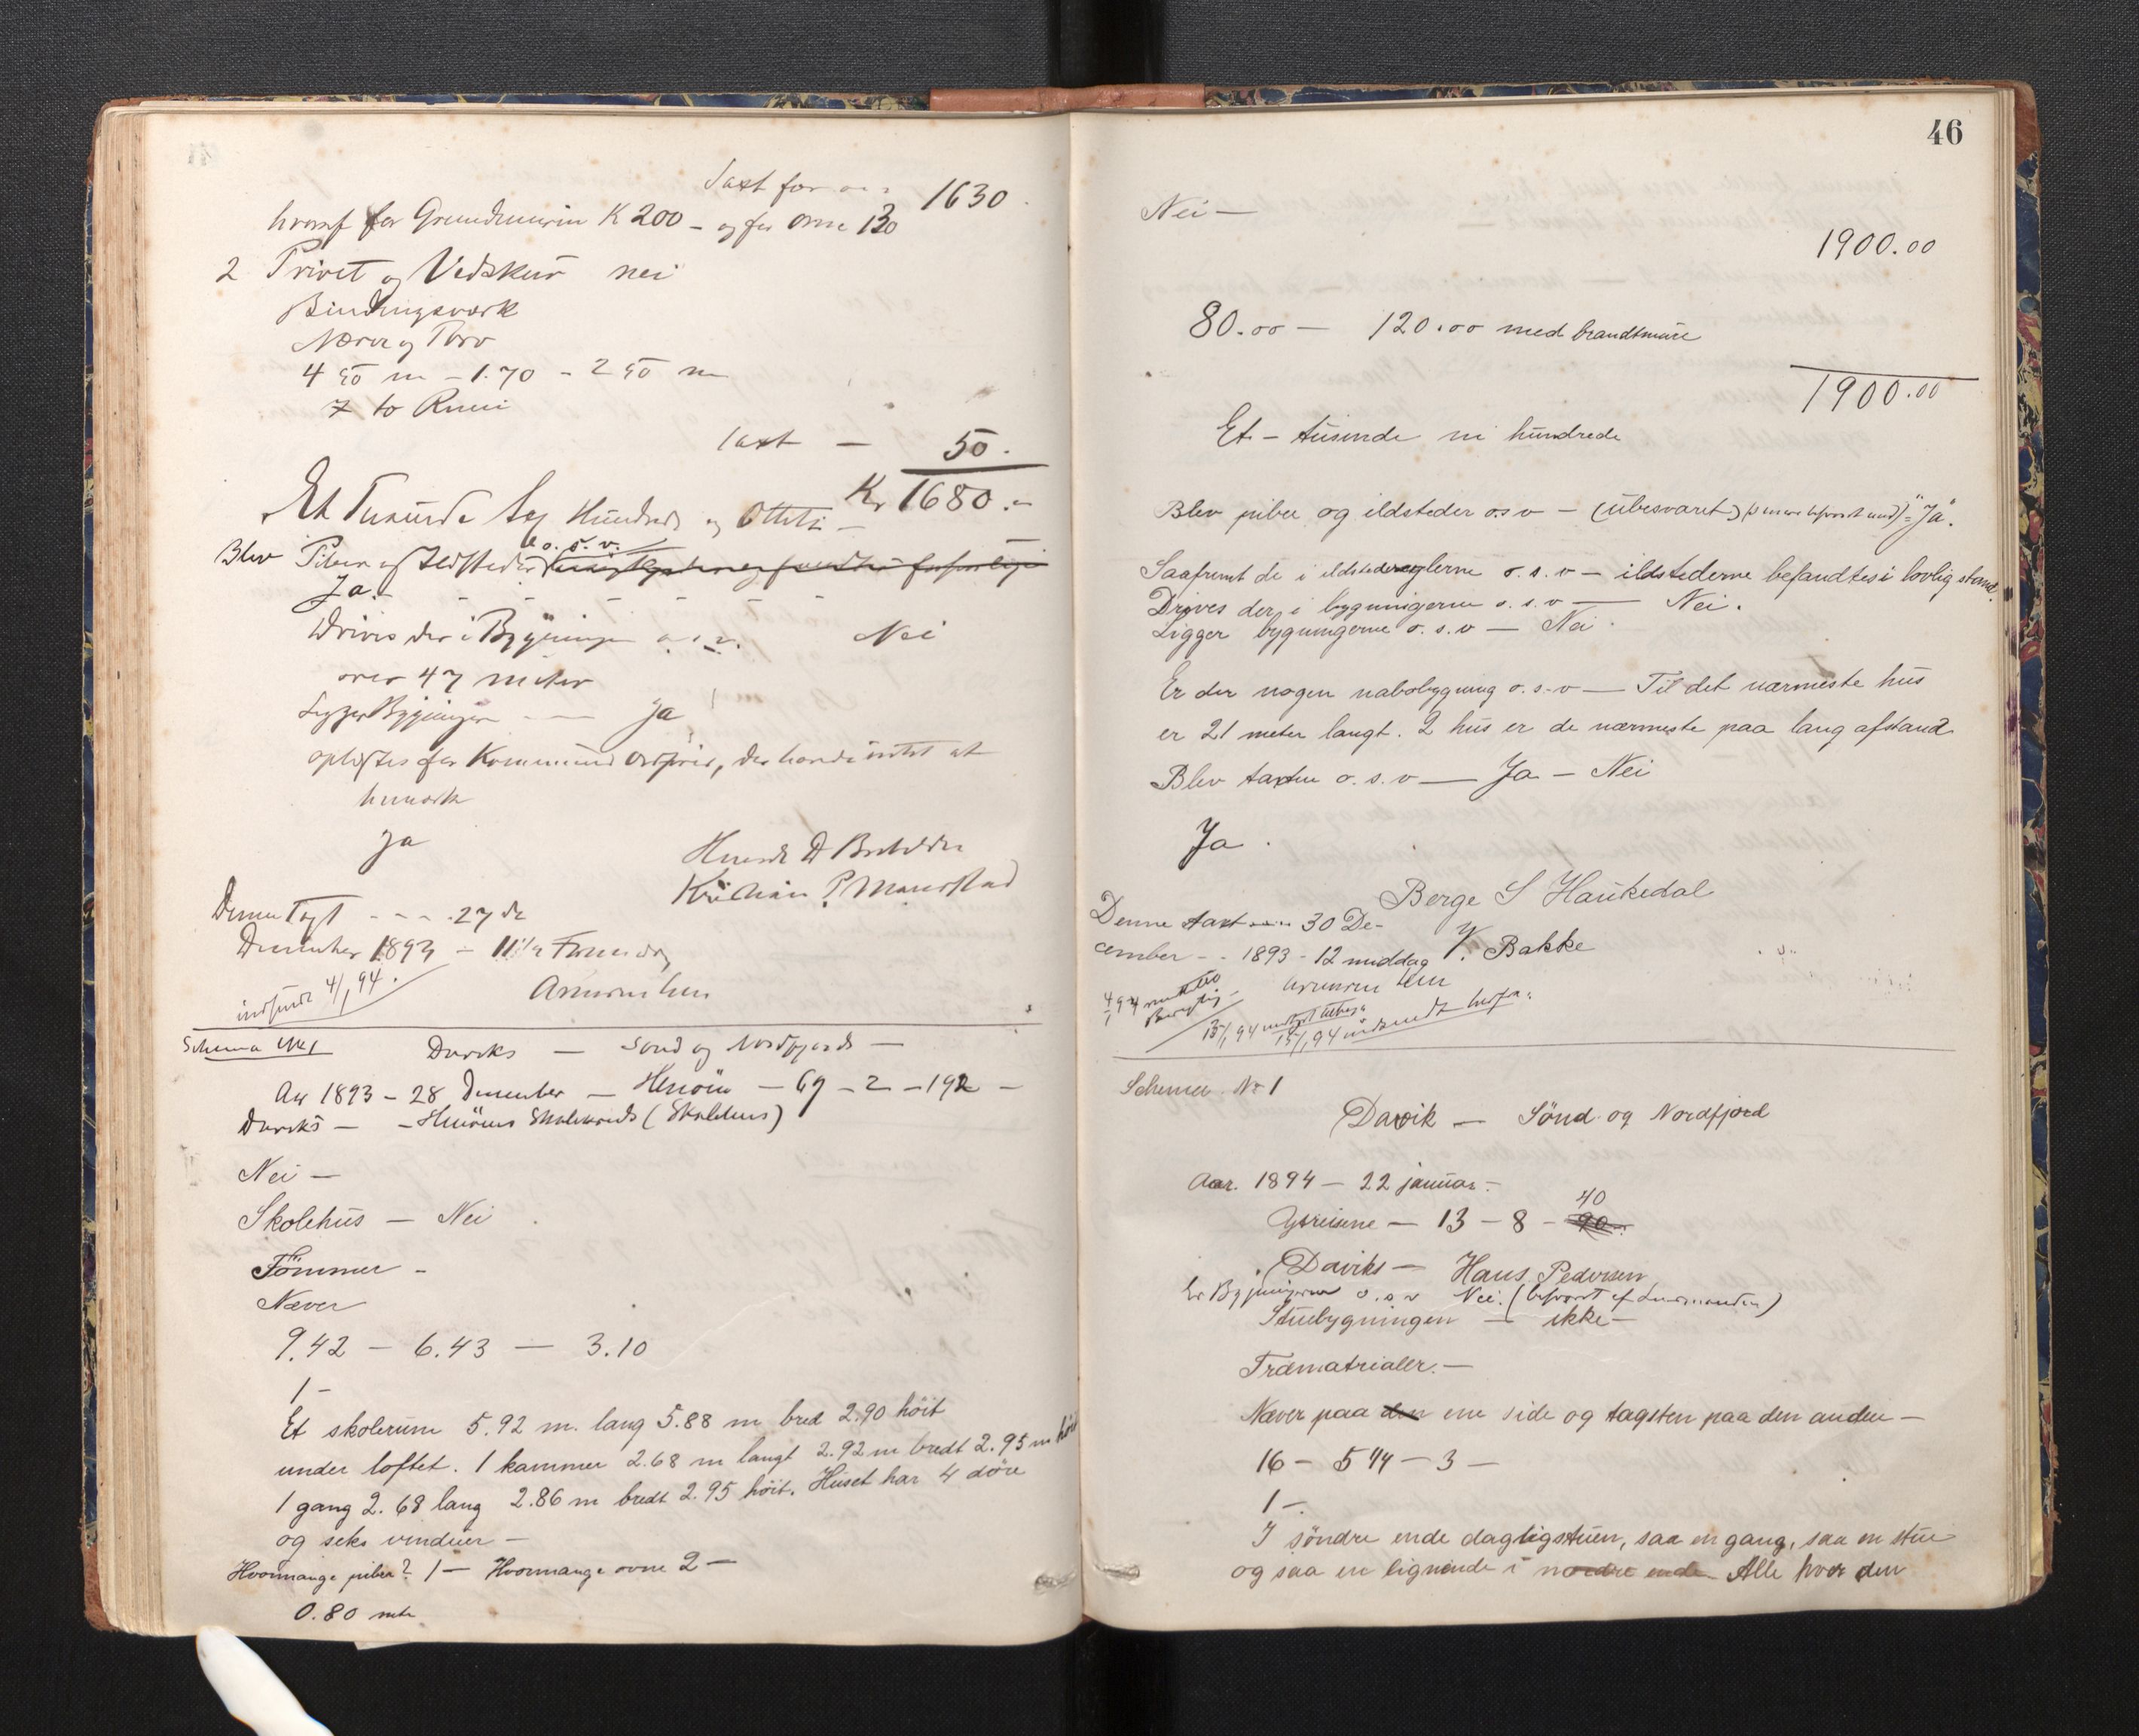 Taxt for 1630
hvoraf for Grundmuren K 200 - og for ovne 130
2 Privet og Vedskur nei
Bindingsværk
Næver og Torv
4 50 m - 1.70 - 2 50 m
to Rum
taxt - 50.
Kr 1680.-
Et Tusinde Sex Hundrede og Otteti -
Blev Piber og Ildsteder o. s. v.
Ja.
Drives der i Bygningen o. s. v. Nei
over 47 meter
Ligger Bygningen - Ja
Ja
Denne Taxt - - - 27 de
December 1893 - 11 1/2 Formidag
indsendt 4/1 94.
Schema No 1
Daviks - Sønd og Nordfjords -
Aar 1893 - 28 December - Hennøen - 69 - 2 - 192 -
Daviks - - Hennøens Skolekreds (Skolehus)
Nei -
Skolehus - Nei
Tømmer -
Næver
9.42 - 6.43 - 3.10
1 -
Et skolerum 5.92 m. lang 5.88 m bred 2.90 höit
under loftet. 1 kammer 2.68 m langt 2.92 m bredt 2.95 m höit
1 gang 2.68 lang 2.86 m bredt 2.95 höit. Huset har 4 döre
og seks vinduer -
Hvormange piber? 1 - Hvormange ovne 2 -
0.80 mtr
46
Nei -
1900.00
80.00 - 120.00 med brandtmure
1900.00
Et - tusinde ni hundrede
Blev piber og ildsteder o s v - (ubesvaret) = "Ja".
Saafremt de i ildstedsreglerne o. s. v - ildstederne befandtes i lovlig stand.
Drives der i bygningerne o. s. v - Nei.
Ligger bygningerne o. s. v - Nei.
Er der nogen nabobygning o. s. v - Til det nærmeste hus
er 21 meter langt. 2 hus er de nærmeste paa lang afstand
Blev taxten o. s. v - Ja - Nei
Ja.
Berge S Haukedal
Denne taxt 30 De-
cember - - 1893 - 12 middag V. Bakke
15/1 94 indsendt
Schema No 1
Davik - Sönd og Nordfjord
Aar. 1894 - 22 januar -
40
13 - 8 - 90
Daviks - Hans Pedersen
Er Bygningerne o. s v Nei. (besvaret af Lensmanden)
Stuebygningen - ikke -
Træmatrialer. -
Næver paa den ene side og tagsten paa den anden -
16 - 5 44 - 3 -
1 -
I söndre ende dagligstuen, saa en gang, saa en stue
og saa en lignende i nordre ende Alle hver den